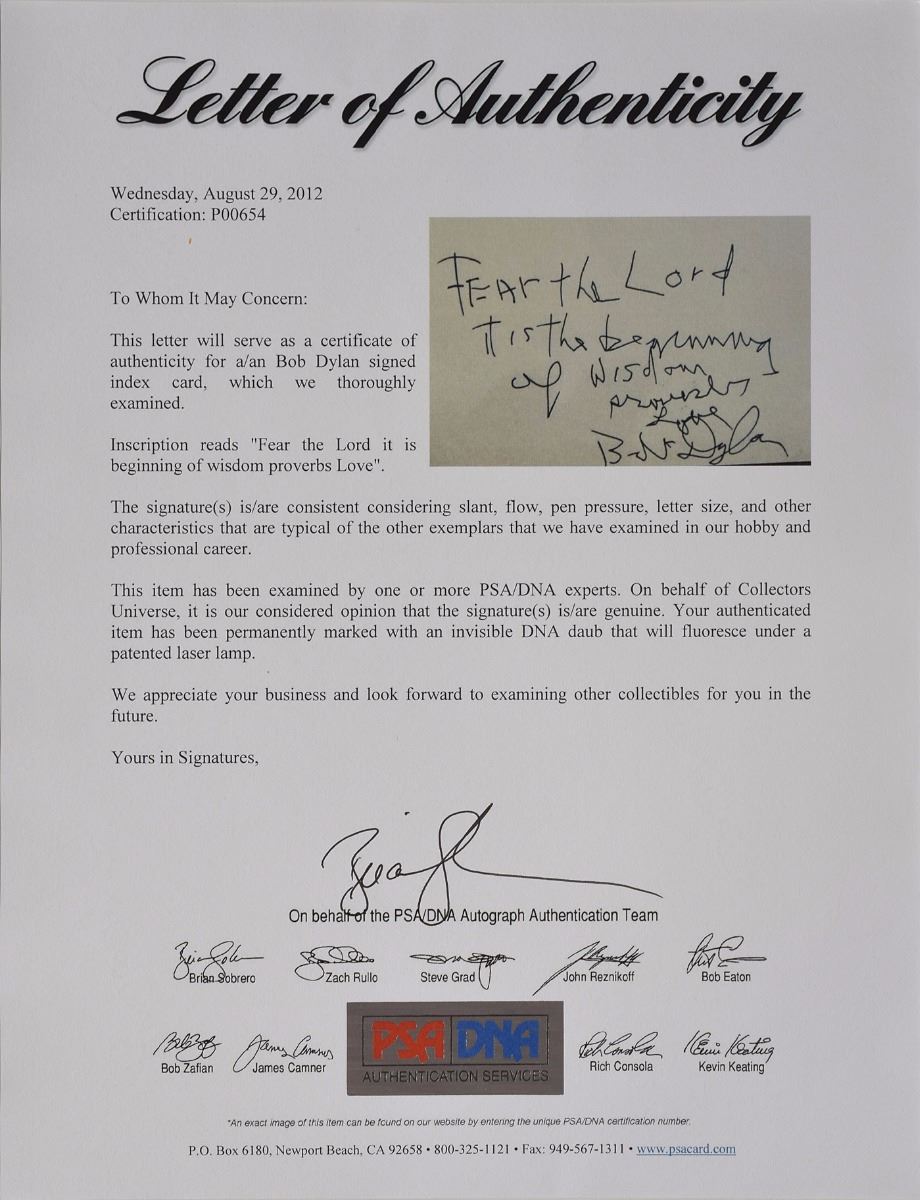 Letter of Authenticity
Wednesday, August 29, 2012
Certification: P00654
To Whom It May Concern:
This letter will serve as a certificate of
authenticity for a/an Bob Dylan signed
index card, which we thoroughly
examined.
Inscription reads "Fear the Lord it is
beginning of wisdom proverbs Love".
FEAr the Lord
it is the beginning
of Wisdom
proverbs
Love
Bob Dylan
The signature(s) is/are consistent considering slant, flow, pen pressure, letter size, and other
characteristics that are typical of the other exemplars that we have examined in our hobby and
professional career.
This item has been examined by one or more PSA/DNA experts. On behalf of Collectors
Universe, it is our considered opinion that the signature(s) is/are genuine. Your authenticated
item has been permanently marked with an invisible DNA daub that will fluoresce under a
patented laser lamp.
We appreciate your business and look forward to examining other collectibles for you in the
future.
Yours in Signatures,
On behalf of the PSA/DNA Autograph Authentication Team
Brian Sobrero Zach Rullo Steve Grad John Reznikoff Bob Eaton
Bob Zafian James Camner Rich Consola Kevin Keating
PSA DNA
AUTHENTICATION SERVICES
*An exact image of this item can be found on our website by entering the unique PSA/DNA certification number.
P.O. Box 6180, Newport Beach, CA 92658 • 800-325-1121 • Fax: 949-567-1311 • www.psacard.com